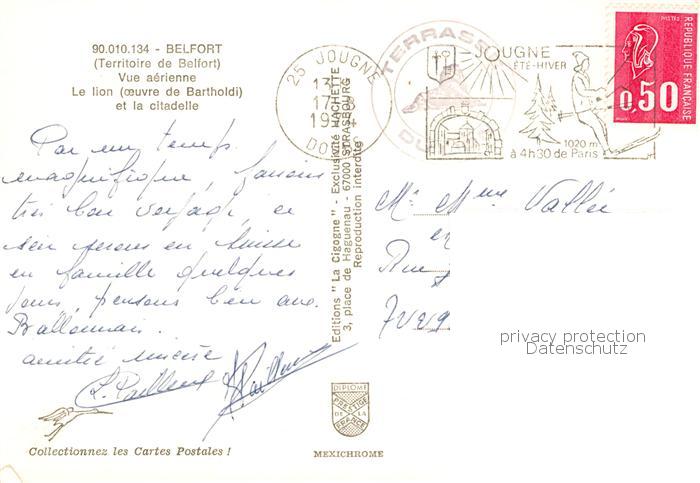 90.010.134 - BELFORT
(Territoire de Belfort)
Vue aérienne
Le lion (œuvre de Bartholdi)
et la citadelle
Par un temps
magnifique, faisons
très bon voyage, ce
soir serons en Suisse
en famille quelques
jours, pensons bien aux
amitié sincère
Collectionnez les Cartes Postales !
Editions "La Cigogne" - Exclusivité HACHETTE
3, place de Haguenau - 67000 STRASBOURG
Reproduction interdite
DIPLOME
PRESTIGE
DE LA
FRANCE
MEXICHROME
25 JOUGNE
DOUBS
TERRASSE
JOUGNE
ÉTÉ-HIVER
1020 m
à 4h30 de Paris
POSTES
RÉPUBLIQUE FRANÇAISE
0,50
Mr Mme Vallée
Rue
privacy protection
Datenschutz